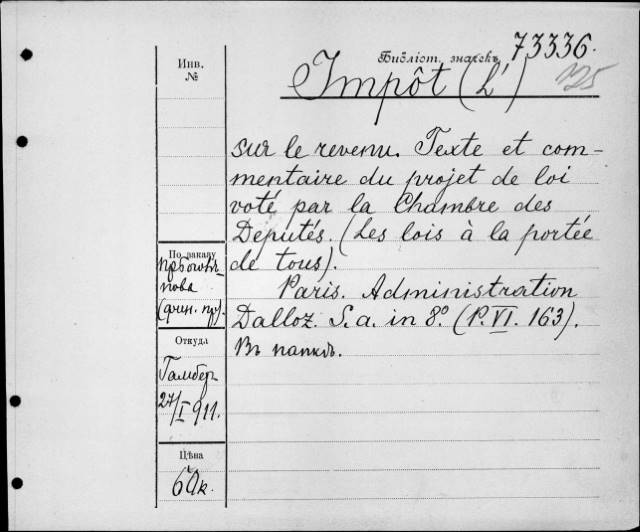 Библіот. значекъ 73336.
125
Impôt (L')
Инв.
№
sur le revenu. Texte et com-
mentaire du projet de loi
voté par la Chambre des
Députés. (Les lois à la portée
de tous).
Paris. Administration
Dalloz. S.a. in 8º. (P. VI. 163).
Въ папкѣ.
По заказу
(фин. пр.).
Откуда
Гамбер
27/I 911.
Цѣна
60к.